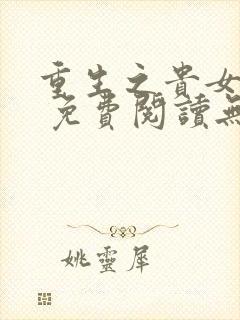 重生之貴女
免費閱讀無
姚靈犀